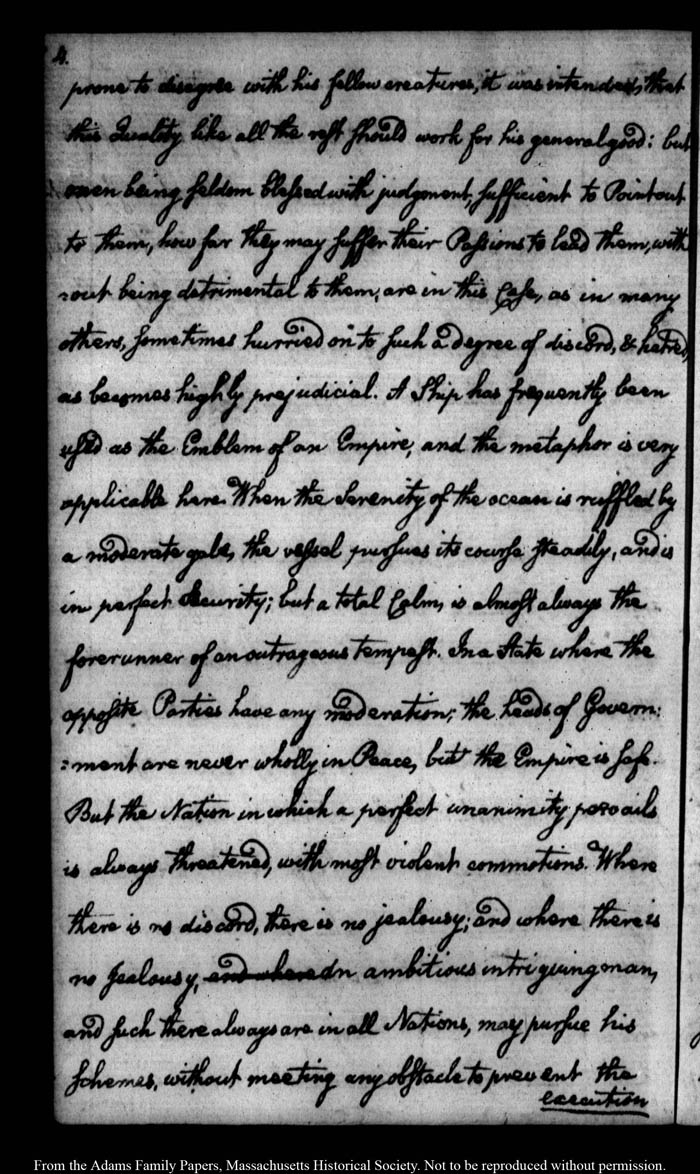 4.
prone to disagree with his fellow creatures, it was intended, that
this Quality like all the rest should work for his general good: but
men being seldom blessed with judgment, sufficient to Point out
to them, how far they may suffer their Passions to lead them, with
=out being detrimental to them, are in this Case, as in many
others, sometimes hurried on to such a degree of discord, & hatred,
as becomes highly prejudicial. A Ship has frequently been
used as the Emblem of an Empire, and the metaphor is very
applicable here. When the Serenity of the ocean is ruffled by
a moderate gale, the vessel pursues its course steadily, and is
in perfect Security; but a total Calm, is almost always the
forerunner of an outrageous tempest. In a State where the
opposite Parties have any moderation; the heads of Govern:
:ment are never wholly in Peace, but the Empire is safe.
But the Nation in which a perfect unanimity prevails
is always threatened, with most violent commotions. Where
there is no discord, there is no jealousy; and where there is
no Jealousy, and where An ambitious intriguing man,
and such there always are in all Nations, may pursue his
Schemes, without meeting any obstacle to prevent the
execution
From the Adams Family Papers, Massachusetts Historical Society. Not to be reproduced without permission.